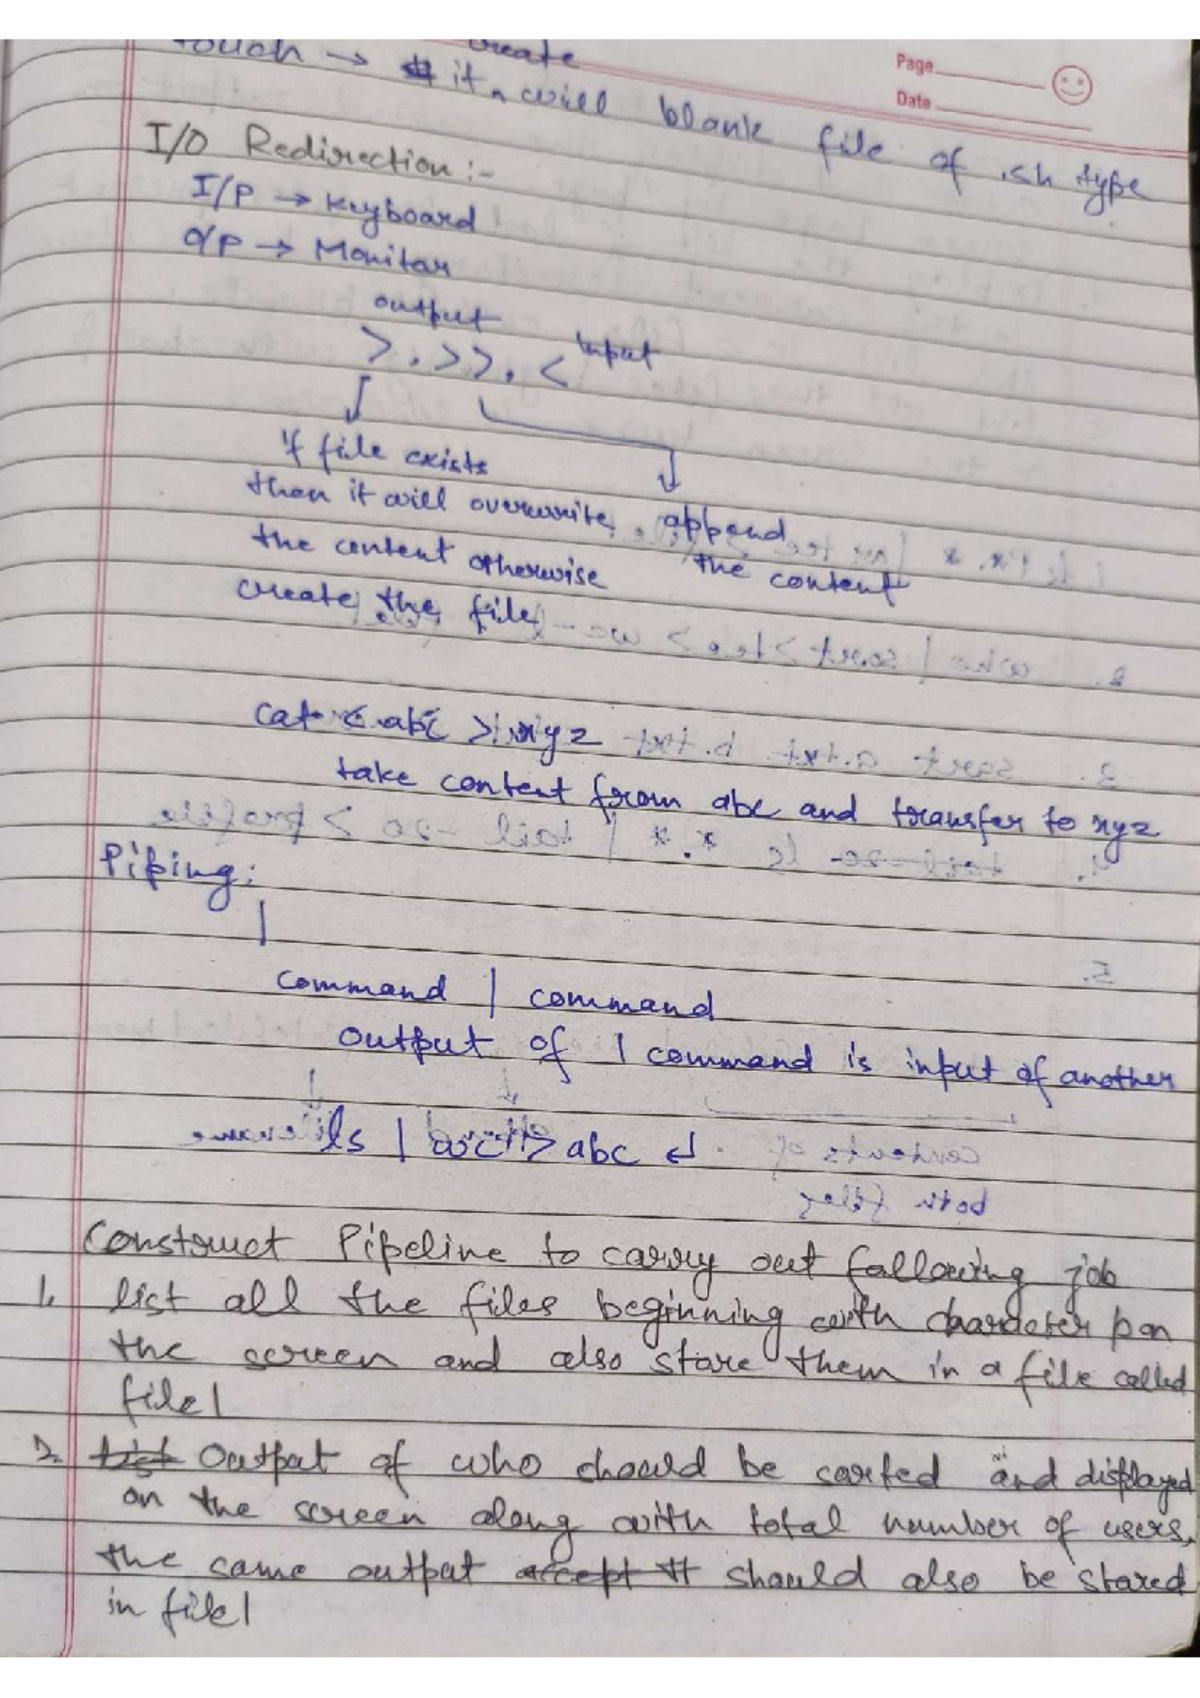 create
touch → it ^ will blank file of .sh type
Page
Date
I/O Redirection :-
I/P → Keyboard
O/P → Monitor
output
>, >>, < input
if file exists
then it will overwrite, append
the content otherwise the content
create the file
cat < abc > xyz
take content from abc and transfer to xyz
Piping:
|
command | command
output of 1 command is input of another
ls | wc > abc ↵
Construct Pipeline to carry out following job
1. list all the files beginning with character p on
the screen and also store them in a file called
file1
2. list Output of who should be sorted and displayed
on the screen along with total number of users,
the same output accept it should also be stored
in file1